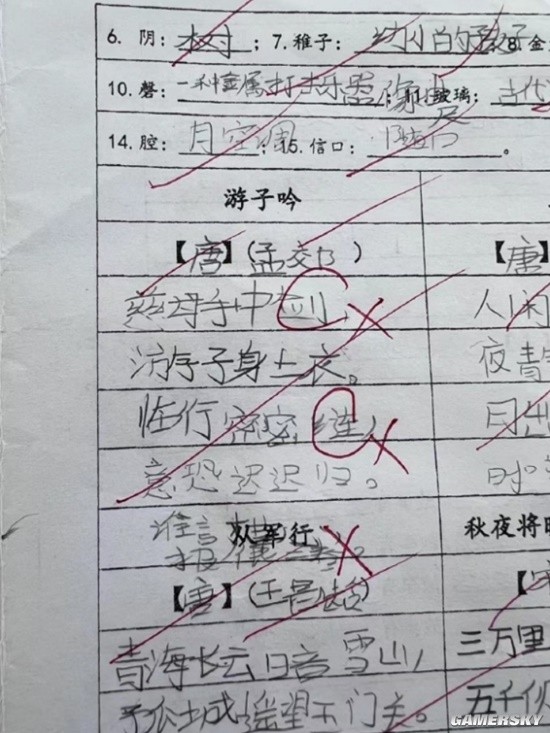 6. 阴：树；7. 稚子：幼小的孩子；8. 金
10. 磬：一种金属打击乐器，像曲尺；11. 玻璃：古代
14. 腔：月空调；15. 信口：随口。
游子吟
【唐】（孟郊） 【唐】
慈母手中剑， 人闲
游子身上衣。 夜青
临行密密缝， 月出
意恐迟迟归。 时
谁言
从军行 秋夜将
【唐】（王昌龄）
青海长云暗雪山， 三万里
孤城遥望玉门关。 五千仞
GAMERSKY